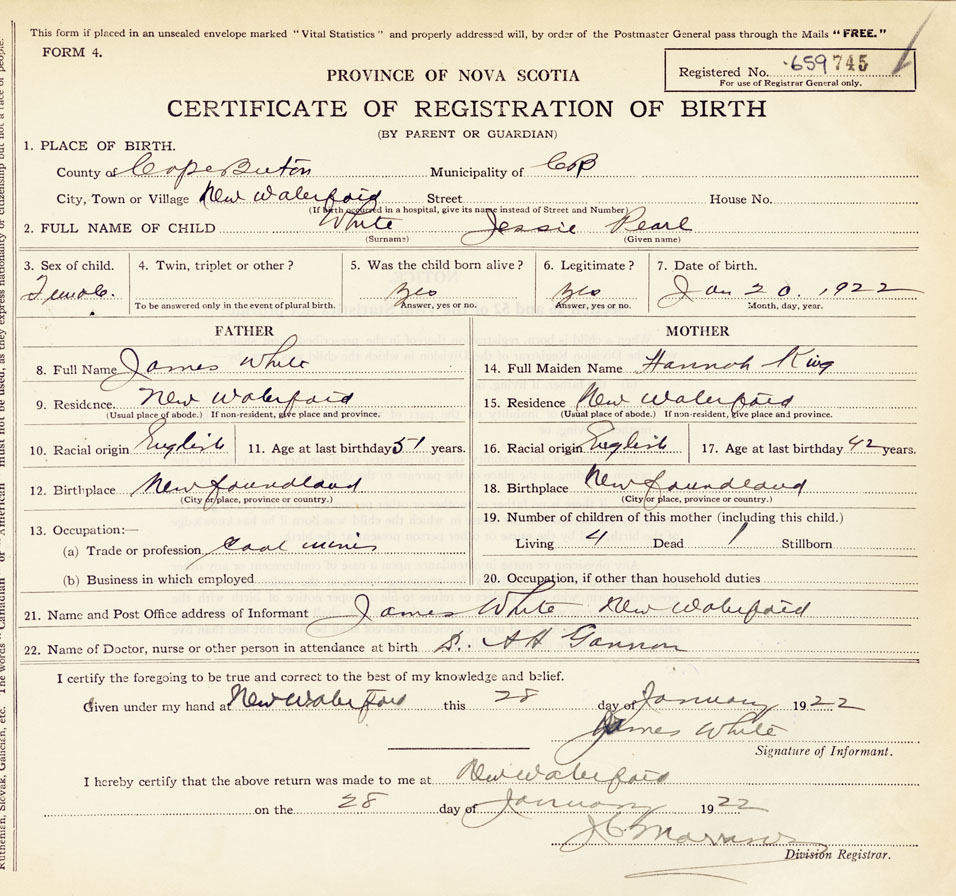 This form if placed in an unsealed envelope marked "Vital Statistics" and properly addressed will, by order of the Postmaster General pass through the Mails "FREE."
FORM 4.
Registered No. 659745
For use of Registrar General only.
PROVINCE OF NOVA SCOTIA
CERTIFICATE OF REGISTRATION OF BIRTH
(BY PARENT OR GUARDIAN)
1. PLACE OF BIRTH.
County of Cape Breton Municipality of CB
City, Town or Village New Waterford Street House No.
(If birth occurred in a hospital, give its name instead of Street and Number)
2. FULL NAME OF CHILD White Jessie Pearl
(Surname) (Given name)
3. Sex of child. 4. Twin, triplet or other? 5. Was the child born alive? 6. Legitimate? 7. Date of birth.
Female. Yes Yes Jan 20. 1922
To be answered only in the event of plural birth. Answer, yes or no. Answer, yes or no. Month, day, year.
FATHER MOTHER
8. Full Name James White 14. Full Maiden Name Hannah King
9. Residence. New Waterford 15. Residence New Waterford
(Usual place of abode.) If non-resident, give place and province. (Usual place of abode.) If non-resident, give place and province.
10. Racial origin English 11. Age at last birthday 51 years. 16. Racial origin English 17. Age at last birthday 42 years.
12. Birthplace Newfoundland 18. Birthplace Newfoundland
(City or place, province or country.) (City or place, province or country.)
13. Occupation:— 19. Number of children of this mother (including this child.)
(a) Trade or profession coal miner Living 4 Dead 1 Stillborn
(b) Business in which employed 20. Occupation, if other than household duties
21. Name and Post Office address of Informant James White New Waterford
22. Name of Doctor, nurse or other person in attendance at birth A H Gannon
I certify the foregoing to be true and correct to the best of my knowledge and belief.
Given under my hand at New Waterford this 28 day of January 1922
James White
Signature of Informant.
I hereby certify that the above return was made to me at New Waterford
on the 28 day of January 1922
Division Registrar.
must not be used, as they express nationality or citizenship but not a race of people.
Ruthenian, Slovak, Galician, etc. The words "Canadian" or "American"